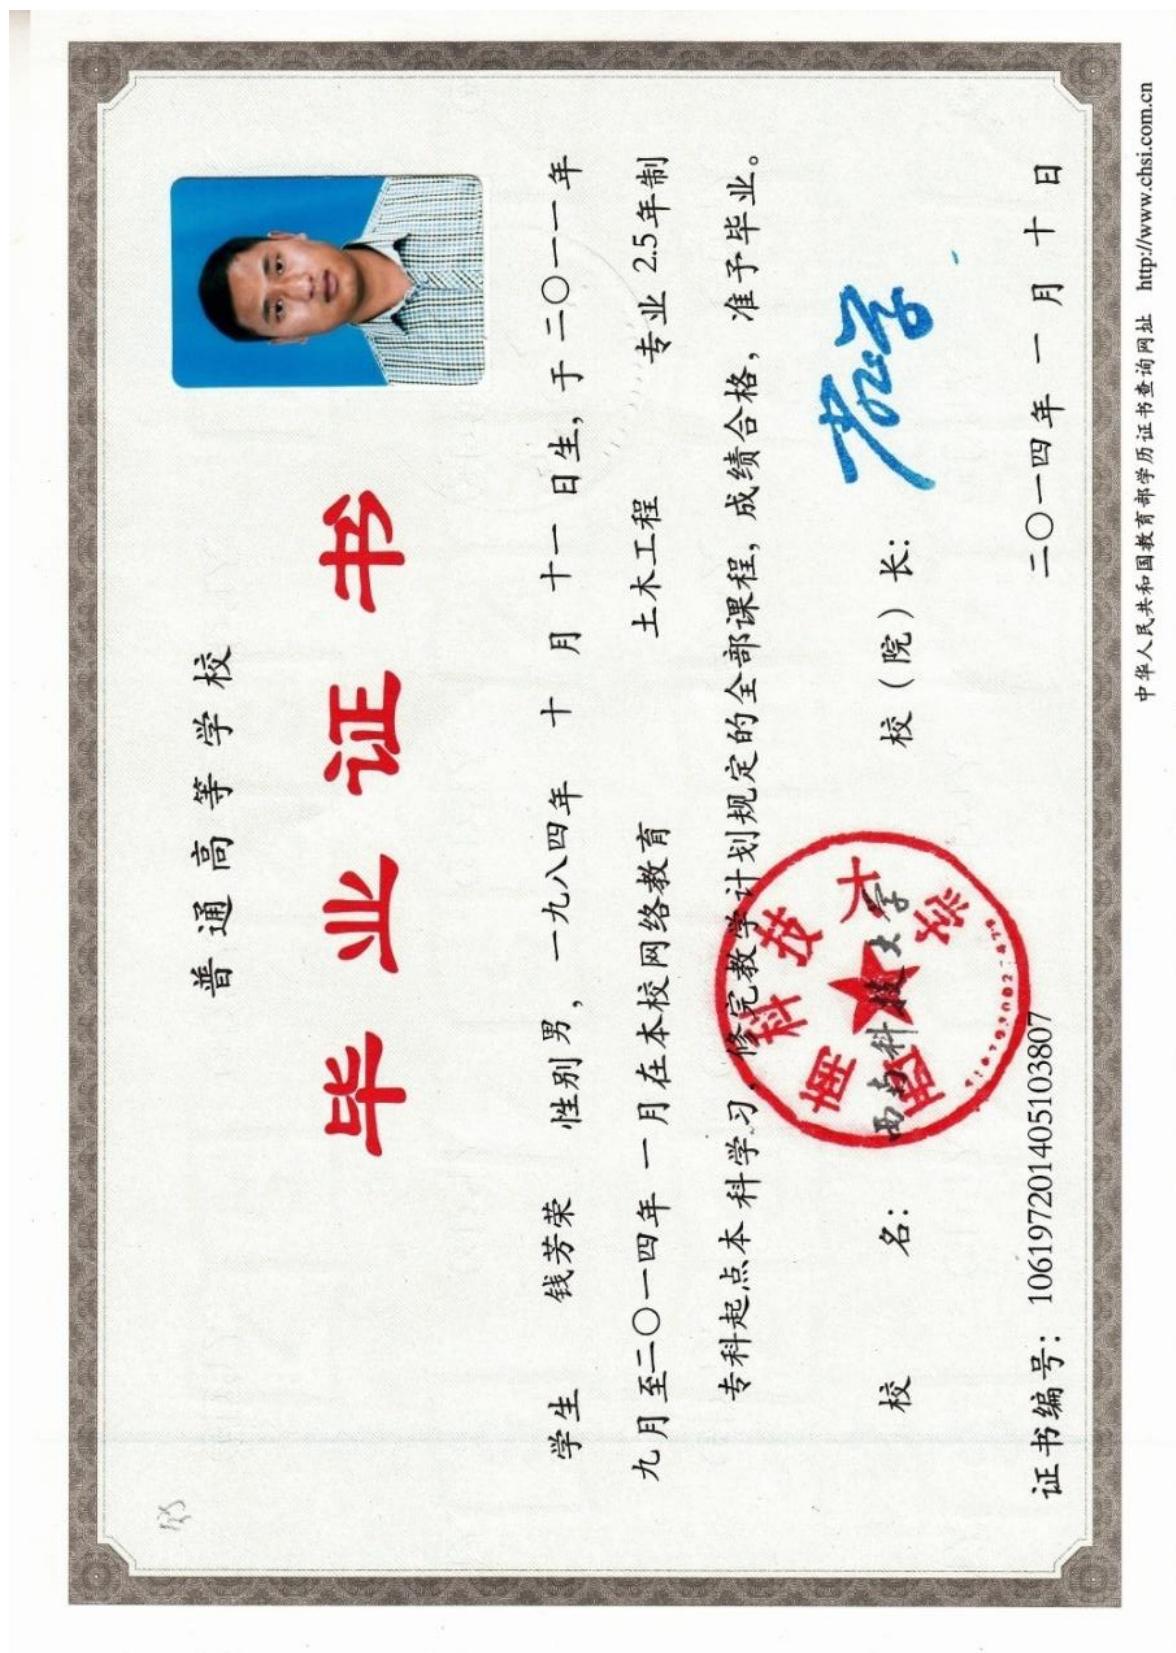 普通高等学校
毕业证书
学生 钱芳荣 性别男，一九八四年 十 月 十一 日生，于二〇一一年
九月至二〇一四年 一月在本校网络教育 土木工程 专业 2.5年制
专科起点本 科学习，修完教学计划规定的全部课程，成绩合格，准予毕业。
校 名： 西南科技大学 校（院）长：
西南科技大学
证书编号：106197201405103807 二〇一四年 一 月 十 日
中华人民共和国教育部学历证书查询网址 http://www.chsi.com.cn